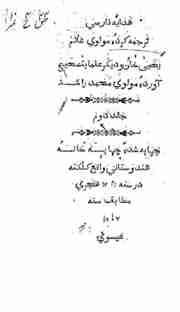 هدایه فارسی
ترجمه کرده مولوی غلام
یحیی خان و دیگر علما بتصحیح
آورده مولوی محمد راشد
جلد دوم
چهاپه شده چهاپه خانه
هندوستانی واقع کلکته
در سنه هجری
مطابق سنه
۱۸۰۷
عیسوی